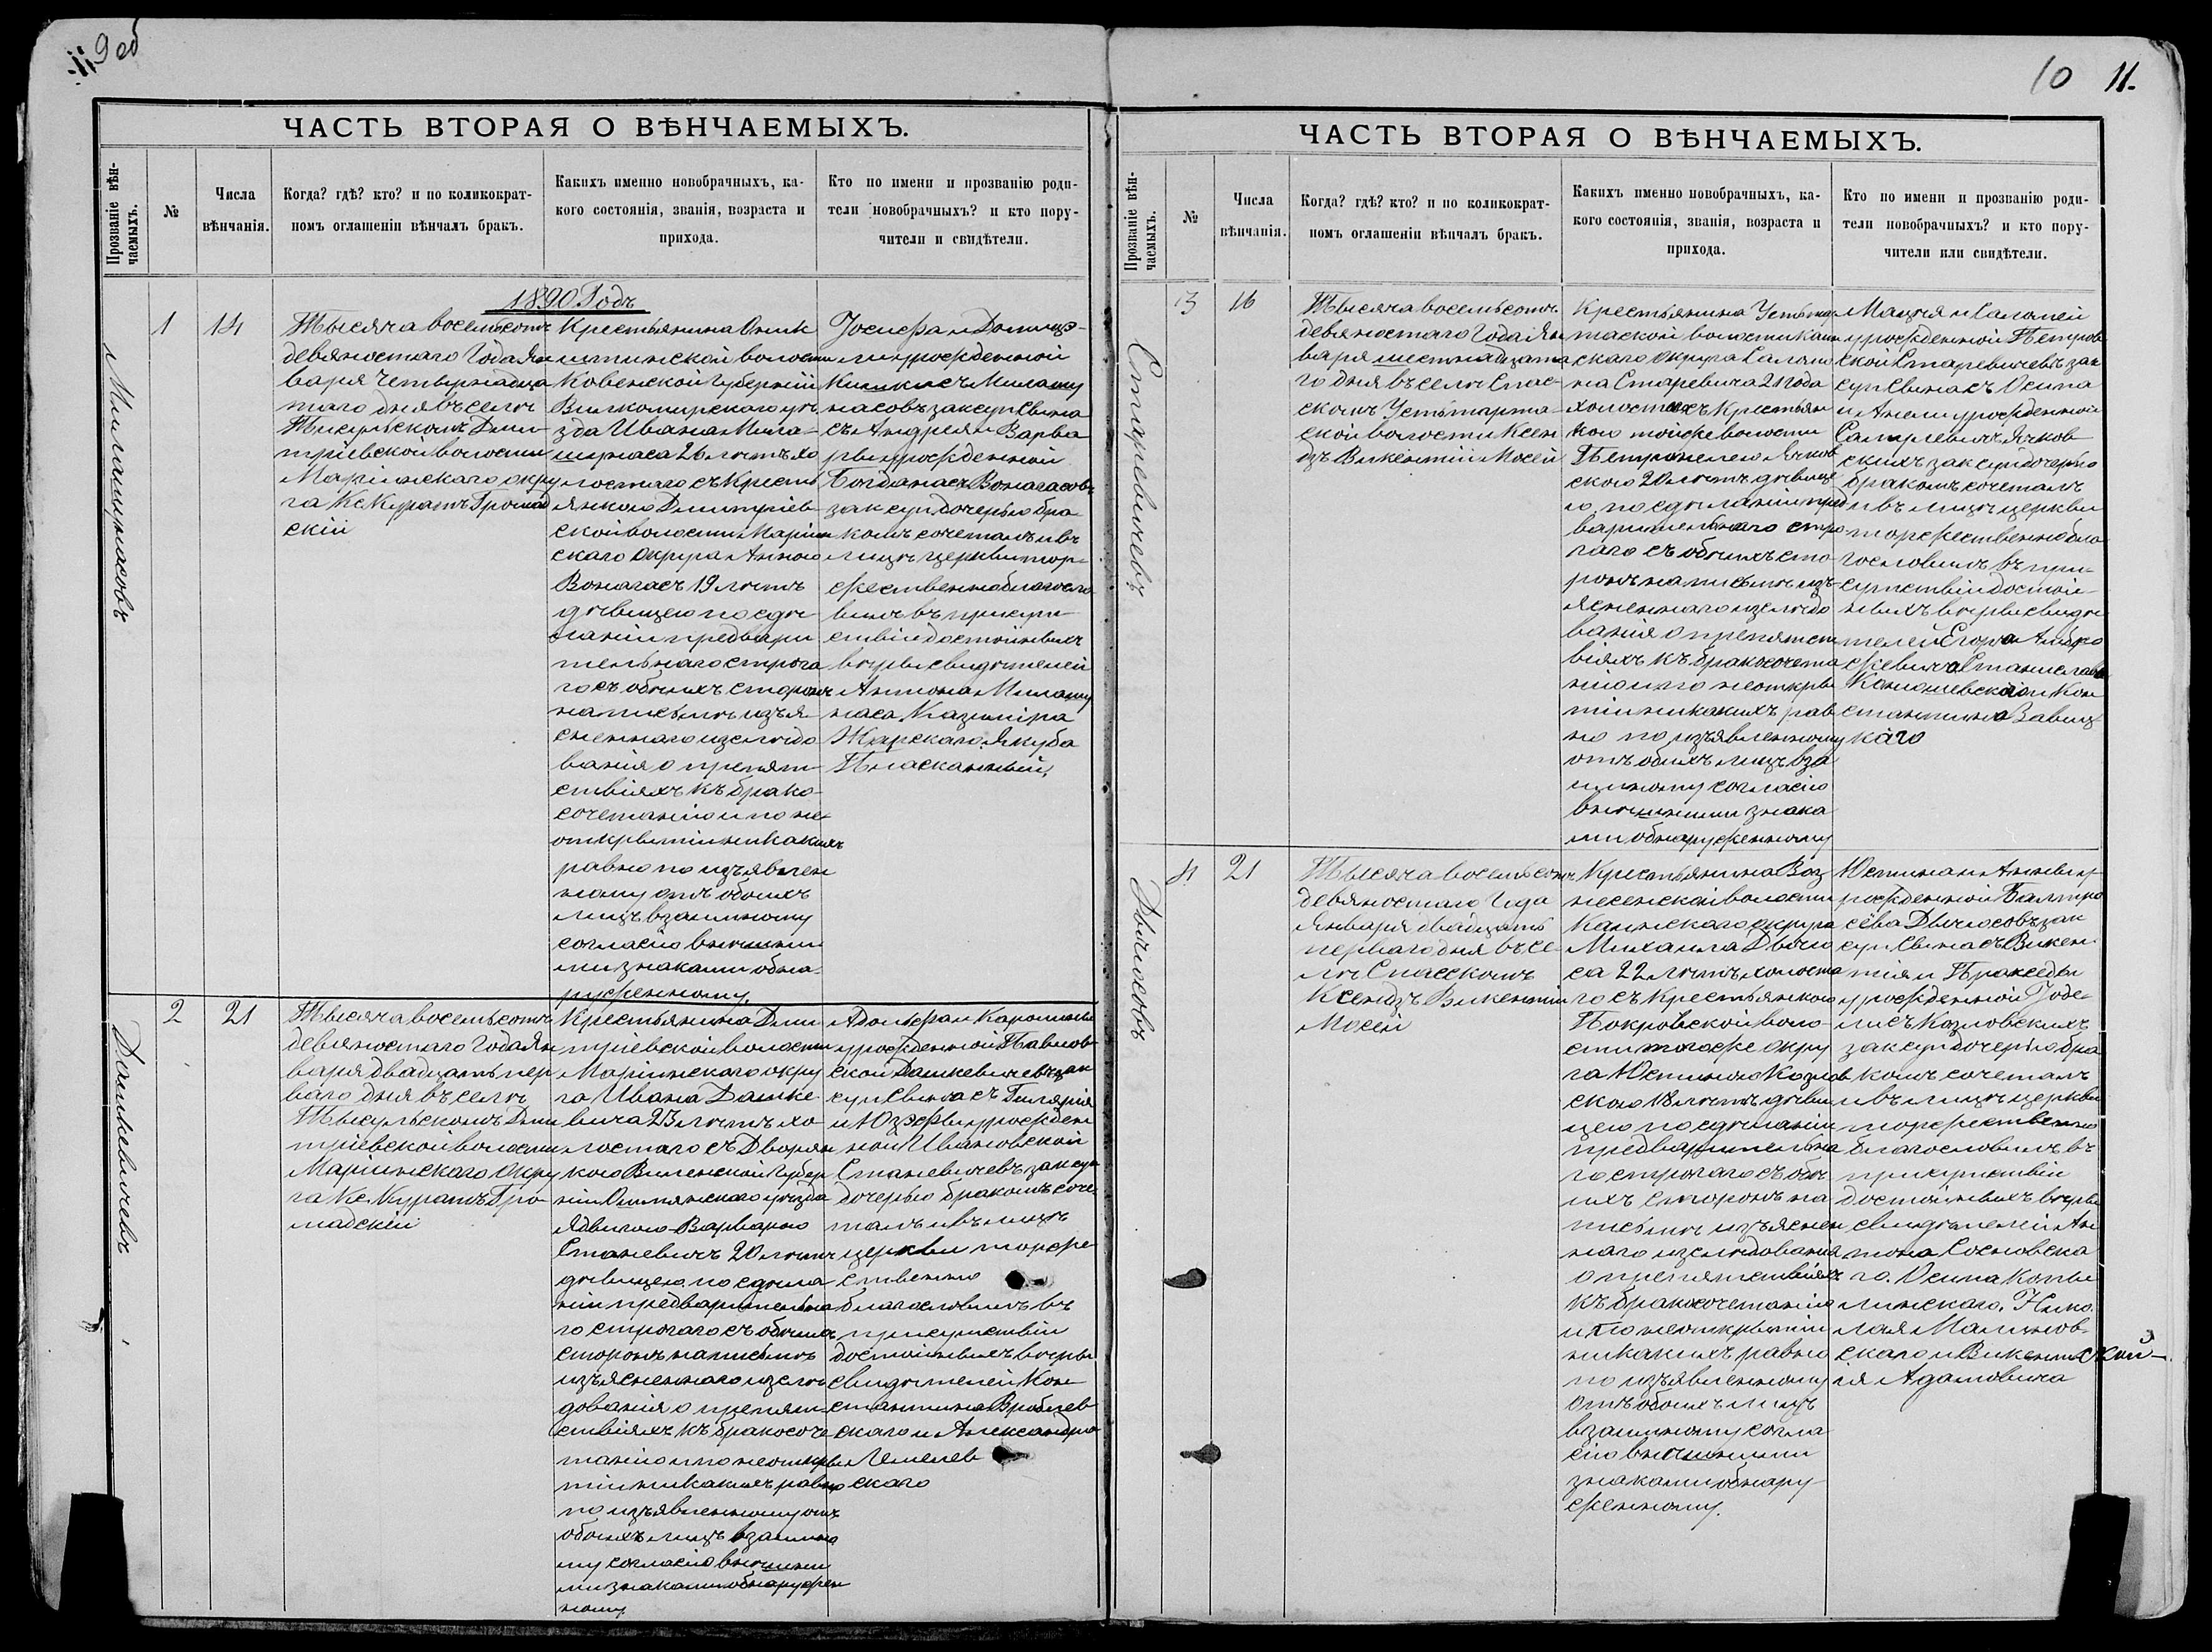 9 об
ЧАСТЬ ВТОРАЯ О ВѢНЧАЕМЫХЪ.
Прозваніе вѣн-
чаемыхъ.
№
Числа
вѣнчанія.
Когда? гдѣ? кто? и по коликократ-
номъ оглашеніи вѣнчалъ бракъ.
Какихъ именно новобрачныхъ, ка-
кого состоянія, званія, возраста и
прихода.
Кто по имени и прозванію роди-
тели новобрачныхъ? и кто пору-
чители и свидѣтели.
1890 Годъ
Милашунасовъ
1
14
Тысяча восемьсотъ
девяностаго Года Ян
варя Четырнадца
таго дня въ селѣ
Тисульскомъ Дми-
тріевской волости
Маріинскаго окру
га Кс Куратъ Громад
скій
Крестьянина Оник
штинской волости
Ковенской Губерніи
Вилкомирскаго уѣ
зда Ивана Мила-
шунаса 26 лѣтъ хо
лостаго съ Кресть
янкою Дмитріев-
ской волости Маріин
скаго округа Анною
Вонагасъ 19 лѣтъ
дѣвицею по сдѣ-
ланіи предвари
тельнаго строга
го съ обѣихъ сторонъ
на письмѣ изъя-
сненнаго изслѣдо
ванія о препят-
ствіяхъ къ брако-
сочетанію и по не-
открытіи никакихъ
равно по изъявлен
ному отъ обоихъ
лицъ взаимному
согласію внѣшни
ми знаками обна-
руженному.
Іосифа и Доминэ-
ли урожденной
Милашу
насовъ законн Сына
съ Андрея и Варва
ры урожденной
Богданасъ Вонагасовъ
законн дочерью бра
комъ сочеталъ и въ
лицѣ церкви тор-
жественно благосло
вилъ въ присут-
ствіи достойныхъ
вѣры свидѣтелей
Антона Милашу
наса Казиміра
Жарскаго Якуба
Плоскання
Дашкевичевъ
2
21
Тысяча восемьсотъ
девяностаго Года Ян
варя двадцать пер
ваго дня въ селѣ
Тисульскомъ Дми
тріевской волости
Маріинскаго Окру
га Кс. Куратъ Гро-
мадскій
Крестьянина Дми
тріевской волости
Маріинскаго окру
га Ивана Дашке
вича 23 лѣтъ хо-
лостаго съ Дворян
кою Виленской Губер
ніи Ошмянскаго уѣзда
Ядвигою-Варварою
Станевичъ 20 лѣтъ
дѣвицею по сдѣла-
ніи предварительна
го строгаго съ обѣихъ
сторонъ на письмѣ
изъясненнаго изслѣ
дованія о препят-
ствіяхъ къ бракосоче
танію и по неоткры
тіи никакихъ равно
по изъявленному отъ
обоихъ лицъ взаимно
му согласію внѣшни
ми знаками обнаружен
ному
Адольфа и Каролины
урожденной Павлов-
ской Дашкевичевъ зак
сун Сына съ Гиларія
и Юзефы урожден
ной Ивановской
Станевичевъ законн
дочерью бракомъ соче
талъ и въ лицѣ
церкви торже
ственно
благословилъ въ
присутствіи
достойныхъ вѣры
Свидѣтелей Кон
стантина Врублев
скаго и Александра
скаго
10 11.
ЧАСТЬ ВТОРАЯ О ВѢНЧАЕМЫХЪ.
Прозваніе вѣн-
чаемыхъ.
№
Числа
вѣнчанія.
Когда? гдѣ? кто? и по коликократ-
номъ оглашеніи вѣнчалъ бракъ.
Какихъ именно новобрачныхъ, ка-
кого состоянія, званія, возраста и
прихода.
Кто по имени и прозванію роди-
тели новобрачныхъ? и кто пору-
чители или свидѣтели.
Старевичевъ
3
16
Тысяча восемьсотъ
девяностаго Года Ян
варя шестнадцата
го дня въ селѣ Спас-
скомъ Устьтарта-
ской волости Ксен
дзъ Викентій Мосей
Крестьянина Устьтар
таской волости Каин
скаго Округа
на Старевича 21 года
холостаго съ Крестьян
кою той же волости
Петронелею Ячков
скою 20 лѣтъ дѣвице
ю по сдѣланіи пред
варительнаго стро-
гаго съ обѣихъ сто-
ронъ на письмѣ изъ-
ясненнаго изслѣдо
ванія о препятст
віяхъ къ бракосочета
нію и по неоткры
тіи никакихъ рав
но по изъявленному
отъ обоихъ лицъ вза
имному согласію
внѣшними знака
ми обнаруженному
Мацѣя и Саломеи
урожденной Петров
ской Старевичевъ зак
сун Сына съ Осипа
и Анели урожденной
Ячков
скихъ законн дочерью
бракомъ сочеталъ
и въ лицѣ церкви
торжественно бла
гословилъ въ при-
сутствіи достой-
ныхъ вѣры свидѣ
телей Егора Амбро
жевича Станислава
и Кон
стантина Завиц
каго
Дылюсовъ
4
21
Тысяча восемьсотъ
девяностаго Года
Января двадцать
перваго дня въ се-
лѣ Спасскомъ
Ксендзъ Викентій
Мосей
Крестьянина Воз
несенской волости
Каинскаго округа
Михаила Дылю
са 22 лѣтъ холоста
го съ Крестьянкою
Покровской воло-
сти того же окру
га Юстиною Козлов
скою 18 лѣтъ дѣви
цею по сдѣланіи
предварительна
го строгаго съ обѣ-
ихъ сторонъ на
письмѣ изъяснен
наго изслѣдованія
о препятствіяхъ
къ бракосочетанію
и по неоткрытіи
никакихъ равно
по изъявленному
отъ обоихъ лицъ
взаимному согла
сію внѣшними
знаками обнару-
женному.
Юстина и Анны у
рожденной Балтро
сёва Дылюсовъ зак
сун Сына съ Викен-
тія и Пракседы
урожденной Годе-
лисъ Козловскихъ
законн дочерью бра
комъ сочеталъ
и въ лицѣ церкви
торжественно
благословилъ въ
присутствіи
достойныхъ вѣры
свидѣтелей Ан
тона Сосновска
го. Осипа Копы
линскаго. Нико.
лая Малинов-
скаго и Викент
ія Адамовича